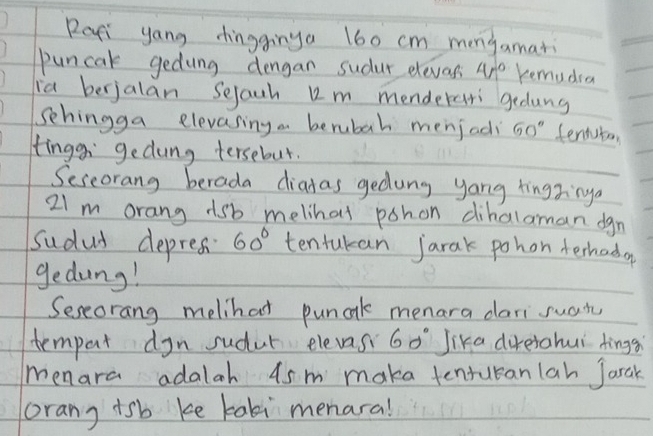 Rafi yang tingginya 160 cm mengamati
puncak gedung dengan sudut elevasi 45° kemudia
ia berjalan sejauh 12 m mendekati gedung
sehingga elevasinya berubah menjadi 60° tentukan
tinggi gedung tersebut.
Seseorang berada diatas gedung yang tingginya
21 m orang tsb melihat pohon dihalaman dgn
sudut depresi 60° tentukan jarak pohon terhadap
gedung!
Seseorang melihat puncak menara dari suatu
tempat dgn sudut elevasi 60° Jika diketahui tinggi
menara adalah 45 m maka tentukanlah Jarak
orang tsb ke kaki menara!